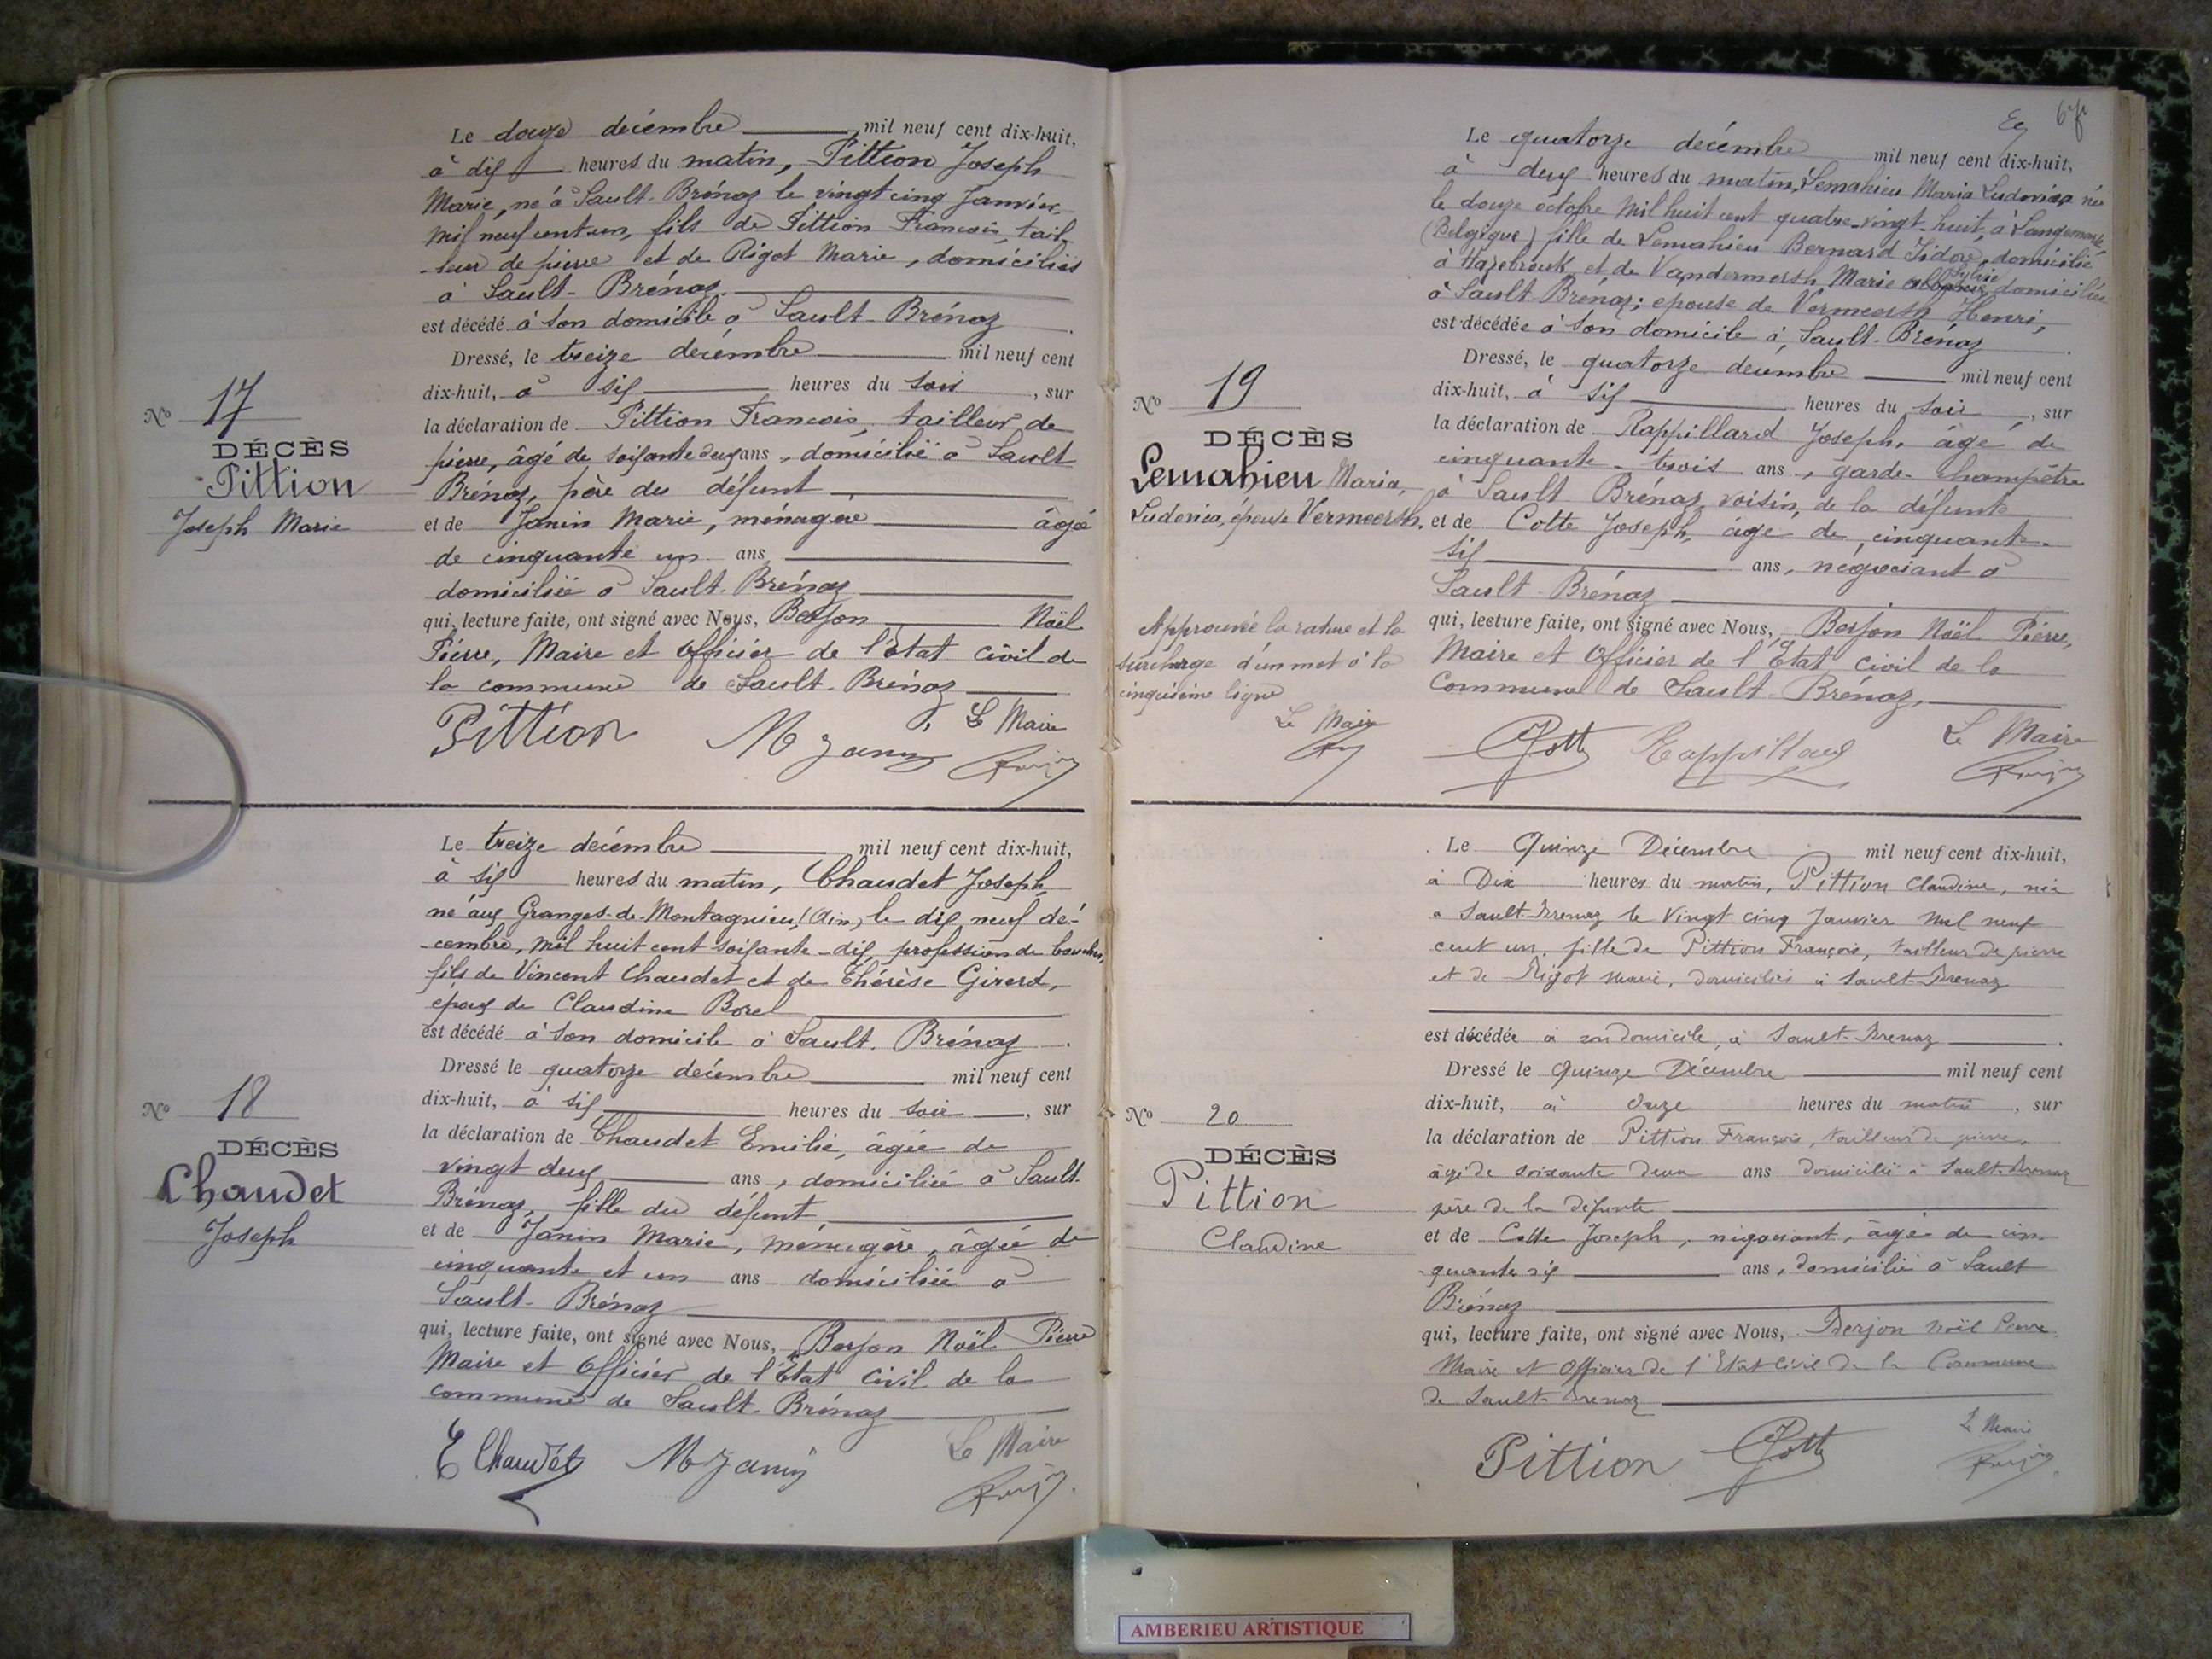 Le douze decémbre mil neuf cent dix-huit,
à dix heures du matin, Pittion Joseph
Marie, né à Sault-Brénaz le vingt cinq Janvier
mil neuf cent un, fils de Pittion Francois, tail-
-leur de pierre et de Rigot Marie, domiciliés
à Sault-Brénaz.
est décédé à son domicile à Sault-Brénaz.
Dressé, le treize decémbre mil neuf cent
dix-huit, à six heures du soir, sur
la déclaration de Pittion Francois, tailleur de
pierre, âgé de soixante deux ans, domicilié à Sault
Brénaz, père du défunt,
et de Janin Marie, ménagère âgée
de cinquante un ans
domiciliée à Sault-Brénaz
qui, lecture faite, ont signé avec Nous, Berjon Noël
Pierre, Maire et Officier de l'état civil de
la commune de Sault-Brénaz
Le Maire
Pittion M Janin
Nº 17
DÉCÈS
Pittion
Joseph Marie
Le treize décémbre mil neuf cent dix-huit,
à six heures du matin, Chaudet Joseph,
né aux Granges-de-Montagnieu, (Ain), le dix neuf dé-
-cembre, mil huit cent soixante-dix, profession de
fils de Vincent Chaudet et de Thérèse Girerd,
époux de Claudine Borel
est décédé à son domicile à Sault-Brénaz.
Dressé le quatorze décémbre mil neuf cent
dix-huit, à six heures du soir, sur
la déclaration de Chaudet Emilie, âgée de
vingt deux ans, domiciliée à Sault-
Brénaz, fille du défunt
et de Janin Marie, ménagère, âgée de
cinquante et un ans domiciliée à
Sault-Brénaz
qui, lecture faite, ont signé avec Nous, Berjon Noël Pierre
Maire et Officier de l'État Civil de la
commune de Sault-Brénaz
E Chaudet M Janin Le Maire
Nº 18
DÉCÈS
Chaudet
Joseph
Le quatorze décémbre mil neuf cent dix-huit,
à deux heures du matin, Lemahieu Maria Ludovica née
le douze octobre mil huit cent quatre-vingt-huit, à
(Belgique) fille de Lemahieu Bernard Isidore, domicilié
à Hazebrouck et de Vandermersh Marie Sylvie domiciliée
à Sault-Brénaz; epouse de Vermeersh Henri,
est décédée à son domicile à Sault-Brénaz.
Dressé, le quatorze décémbre mil neuf cent
dix-huit, à six heures du soir, sur
la déclaration de Rappillard Joseph, âgé de
cinquante-trois ans, garde-champêtre
à Sault-Brénaz, voisin, de la défunte
et de Cotte Joseph, âgé de cinquante-
six ans, négociant à
Sault-Brénaz
qui, lecture faite, ont signé avec Nous, Berjon Noël Pierre,
Maire et Officier de l'État Civil de la
Commune de Sault-Brénaz.
Cotte Rappillard Le Maire
Nº 19
DÉCÈS
Lemahieu Maria,
Ludovica, épouse Vermeersh.
Approuvée la rature et la
surcharge d'un mot à la
cinquième ligne
Le Maire
Le Quinze Décembre mil neuf cent dix-huit,
à Dix heures du matin, Pittion Claudine, née
a Sault-Brenaz le Vingt cinq Janvier mil neuf
cent un, fille de Pittion François, tailleur de pierre
et de Rigot Marie, domiciliés à Sault-Brenaz
est décédée à son domicile, à Sault-Brenaz.
Dressé le Quinze Décembre mil neuf cent
dix-huit, à Onze heures du matin, sur
la déclaration de Pittion François, tailleur de pierre,
âgé de soixante deux ans domicilié à Sault-Brenaz
père de la défunte
et de Cotte Joseph, négociant, âgé de cin-
-quante six ans, domicilié à Sault
Brénaz
qui, lecture faite, ont signé avec Nous, Berjon Noël Pierre
Maire et Officier de l'Etat Civil de la Commune
de Sault-Brenaz
Pittion Cotte Le Maire
Nº 20
DÉCÈS
Pittion
Claudine
AMBERIEU ARTISTIQUE